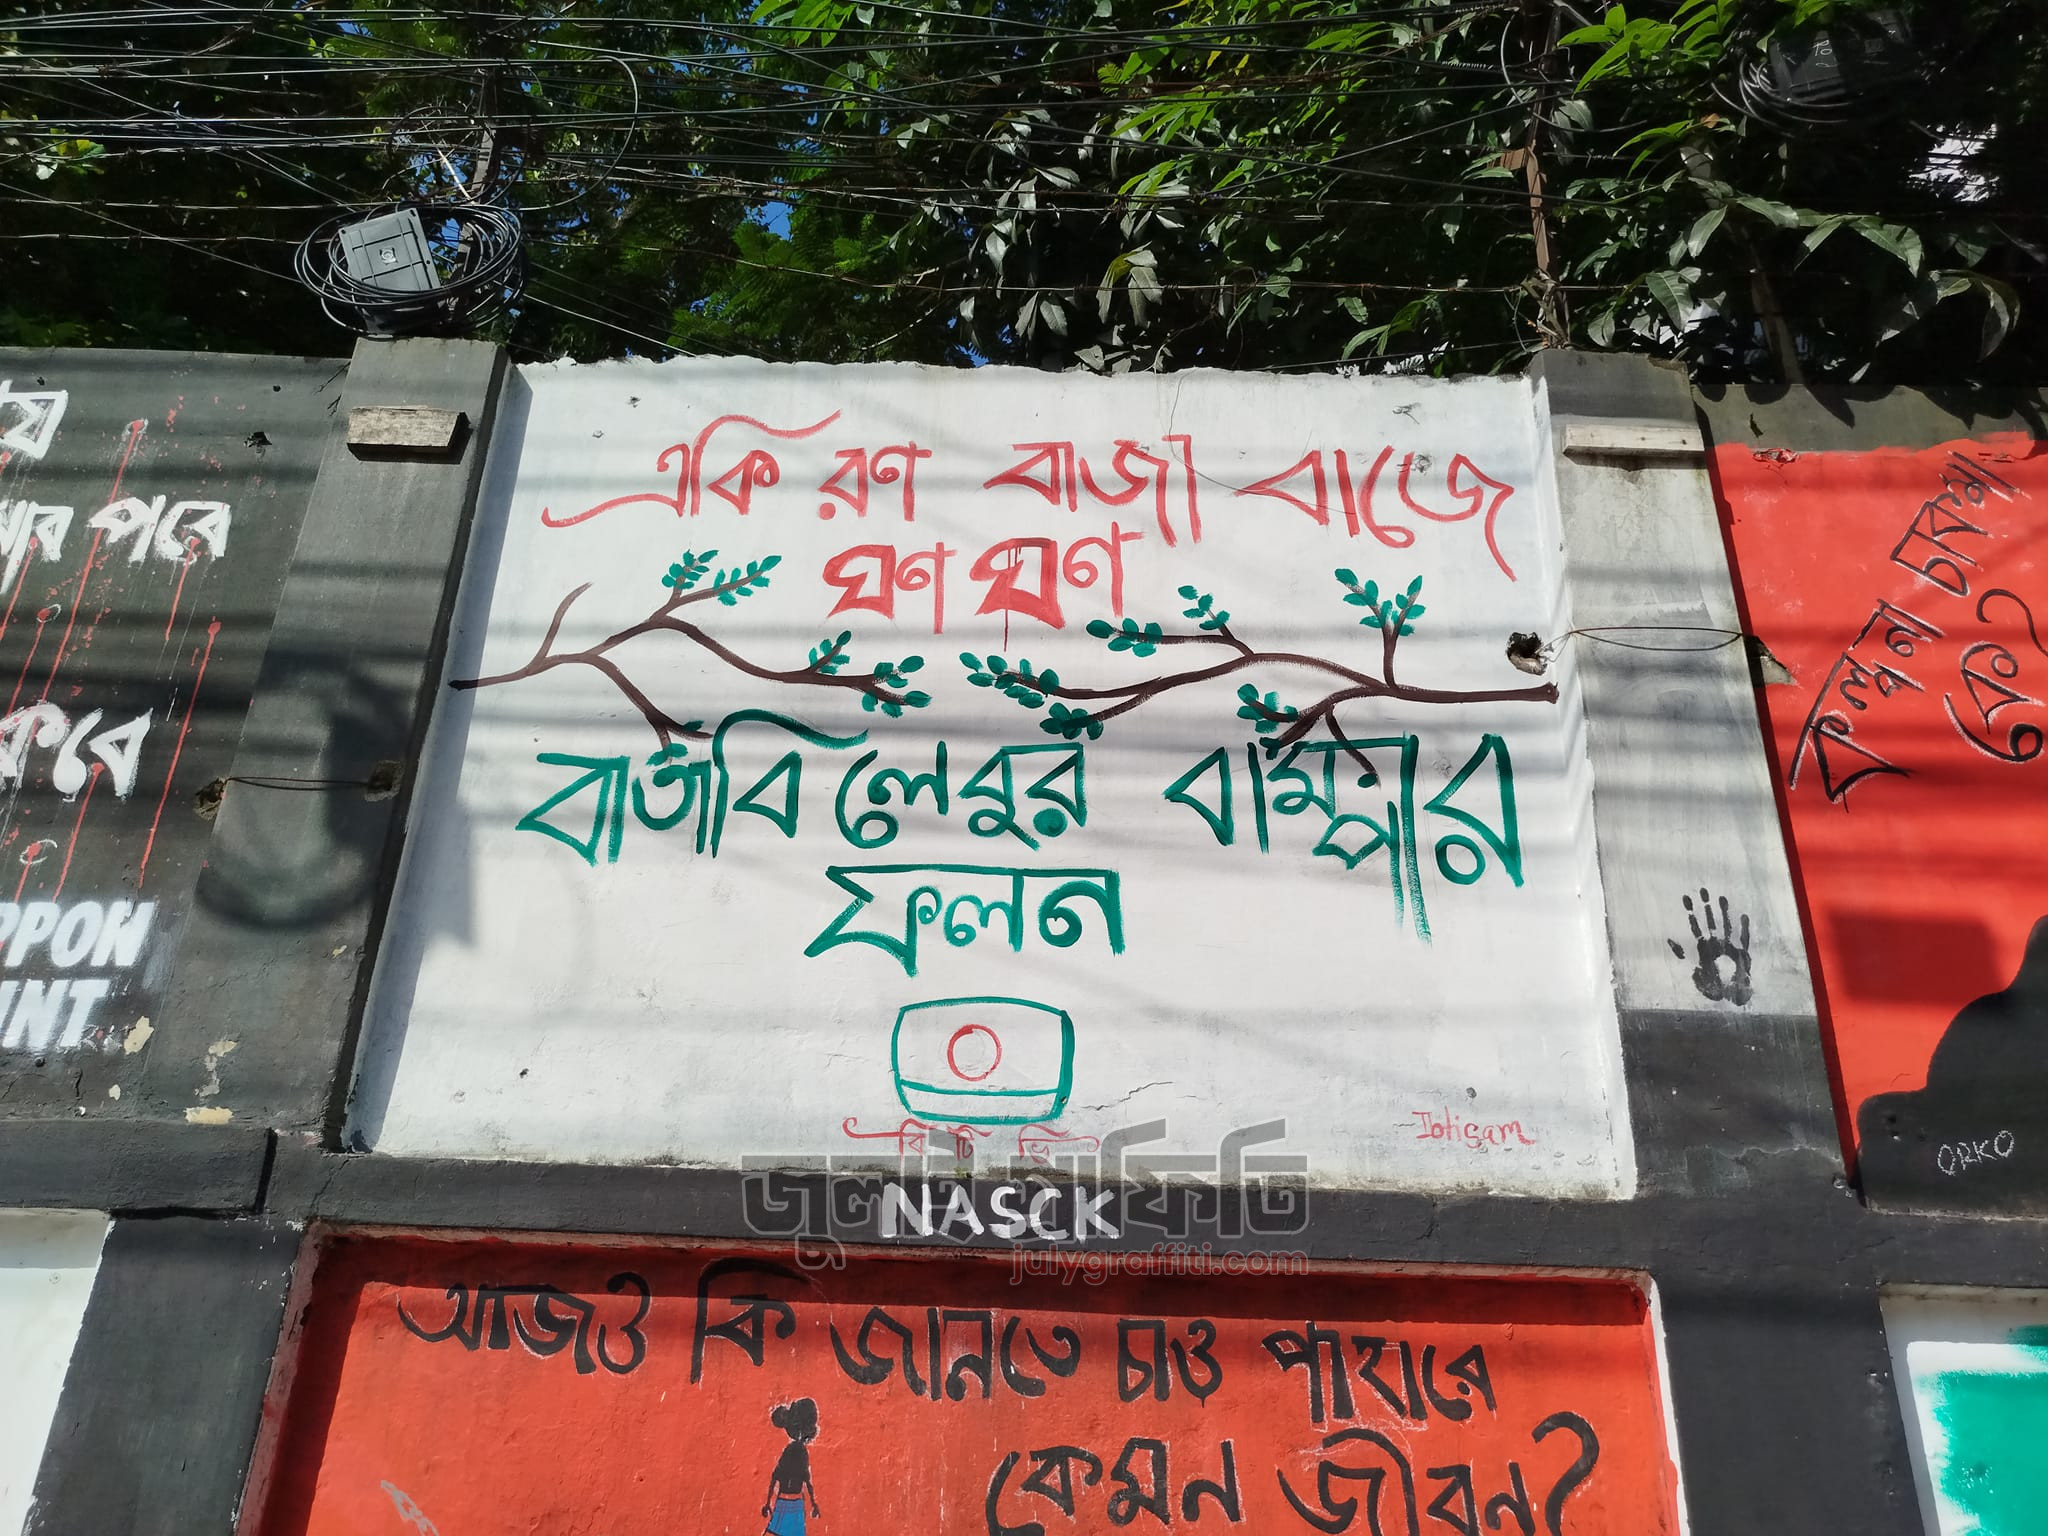 একি রণ বাজা বাজে
ঘণ ঘণ
বাতাবি লেবুর বাম্পার
ফলন
বি টি ভি
Ibtisam
NASCK
জুলাই গ্রাফিতি
julygraffiti.com
আজও কি জানতে চাও পাহারে
কেমন জীবন?
পরে
করে
PPON
INT
কল্পনা চাকমা
কে?
ORKO